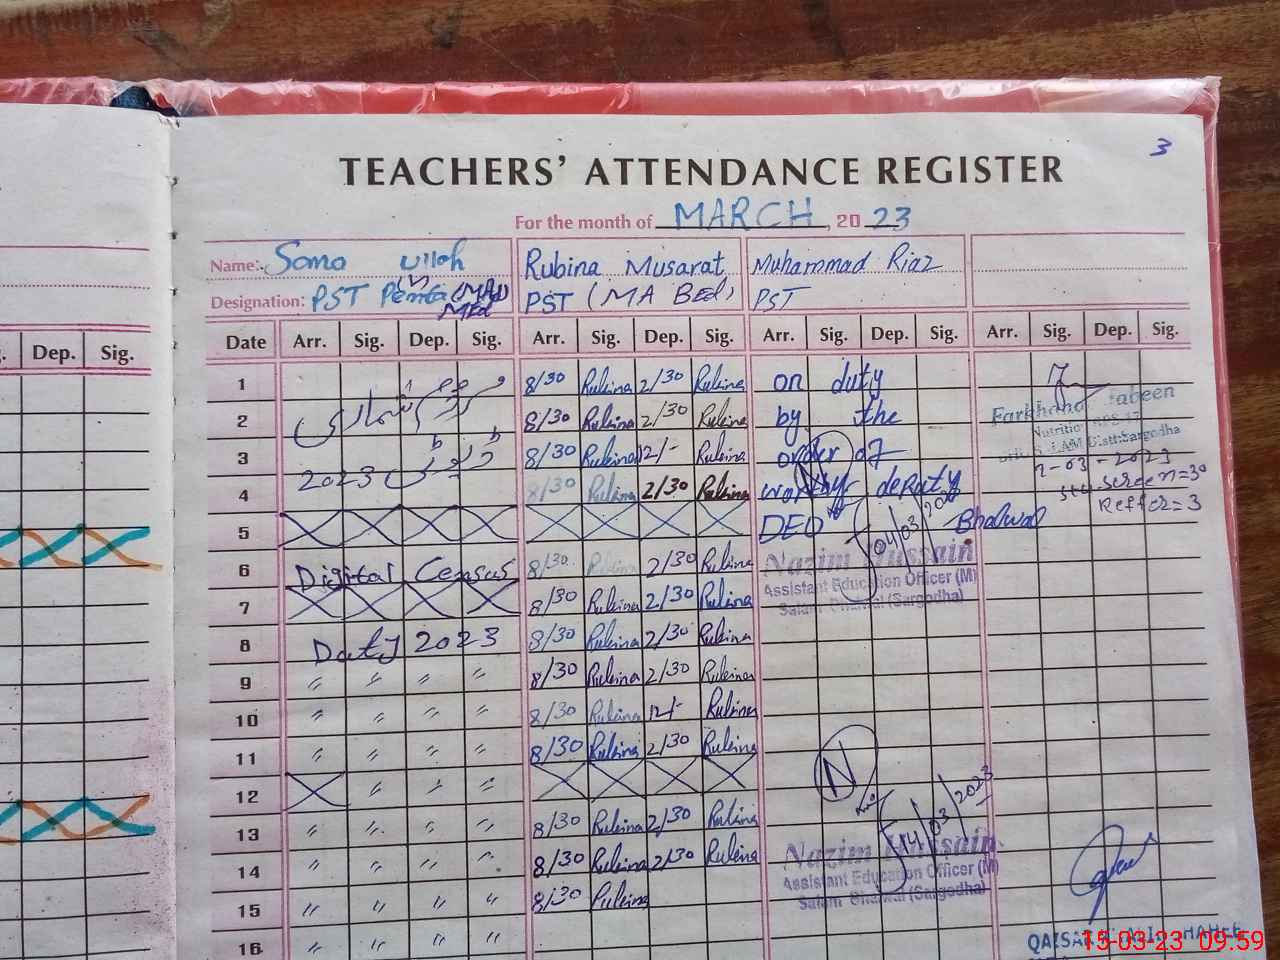 3
TEACHERS' ATTENDANCE REGISTER
For the month of MARCH, 2023
Name: Sama Ullah Rubina Musarat Muhammad Riaz
Designation: PST (MA Bed) PST
MEd
Dep. Sig. Date Arr. Sig. Dep. Sig. Arr. Sig. Dep. Sig. Arr. Sig. Dep. Sig. Arr. Sig. Dep. Sig.
1 8/30 Rubina 2/30 Rubina on duty
2 مردم شماری 8/30 Rubina 2/30 Rubina by the
3 8/30 Rubina 12/- Rubina order of
4 2023 8/30 Rubina 2/30 Rubina worthy deputy
5 DEO Bhalwal
Farkhanda Jabeen
Distt:Sargodha
-03-2023
screen=30
Reffer=3
04/03/2023
6 Digital Census 8/30 2/30 Rubina
Nazim Hussain
Assistant Education Officer (M)
Salam Bhalwal (Sargodha)
7 8/30 Rubina 2/30 Rubina
8 Duty 2023 8/30 Rubina 2/30 Rubina
9 〃 〃 〃 〃 8/30 Rubina 2/30 Rubina
10 〃 〃 〃 〃 8/30 Rubina 12/- Rubina
11 〃 〃 〃 〃 8/30 Rubina 2/30 Rubina
12 〃 〃 〃
N
14/03/2023
13 〃 〃 〃 〃 8/30 Rubina 2/30 Rubina
14 〃 〃 〃 〃 8/30 Rubina 2/30 Rubina
Nazim Hussain
Assistant Education Officer (M)
Salam Bhalwal (Sargodha)
15 〃 〃 〃 〃 8/30 Rubina
16 〃 〃 〃 〃
15-03-23 09:59